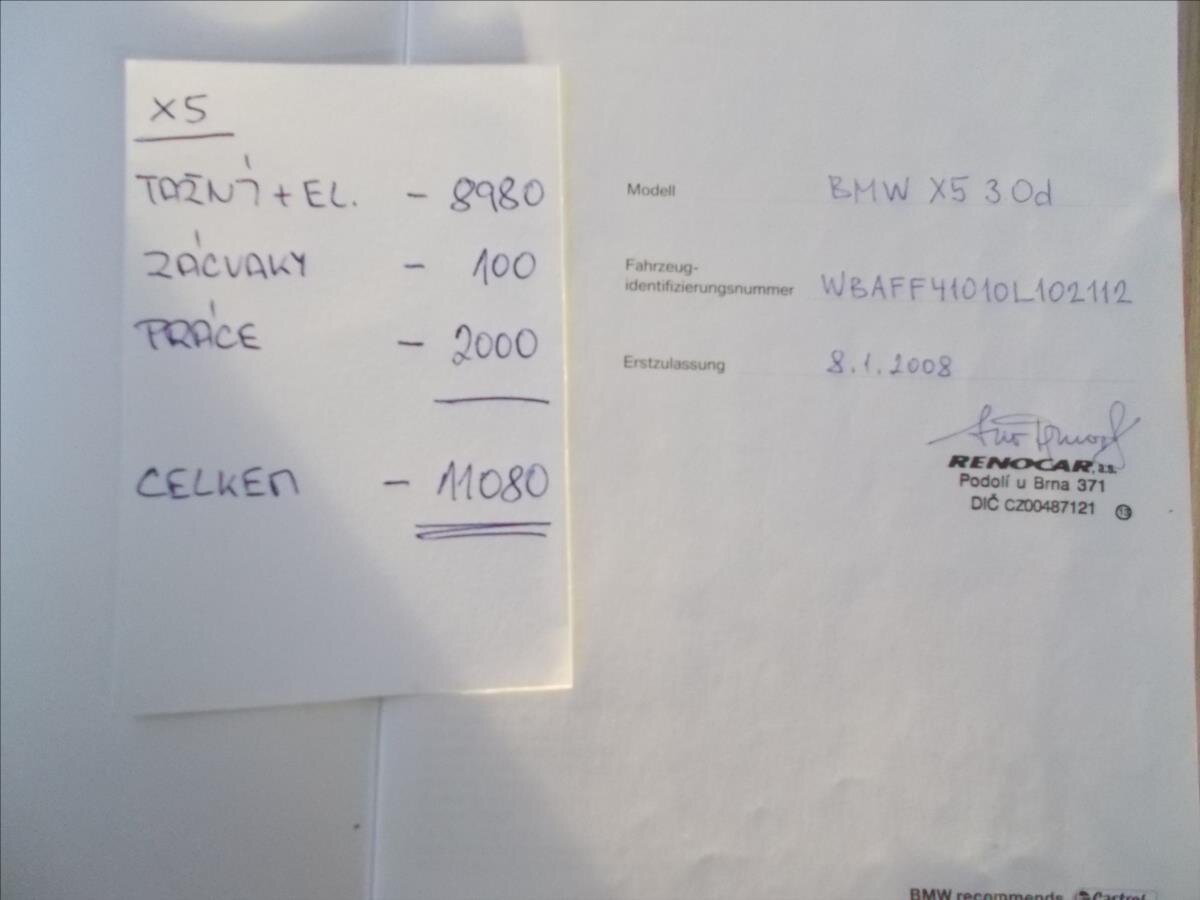 X5
TAŽNÝ + EL. - 8980
ZÁCVAKY - 100
PRÁCE - 2000
CELKEM - 11080
Modell BMW X5 3.0d
Fahrzeug-
identifizierungsnummer WBAFF41010L102112
Erstzulassung 8.1.2008
RENOCAR, a.s.
Podolí u Brna 371
DIČ CZ00487121
BMW recommends Castrol